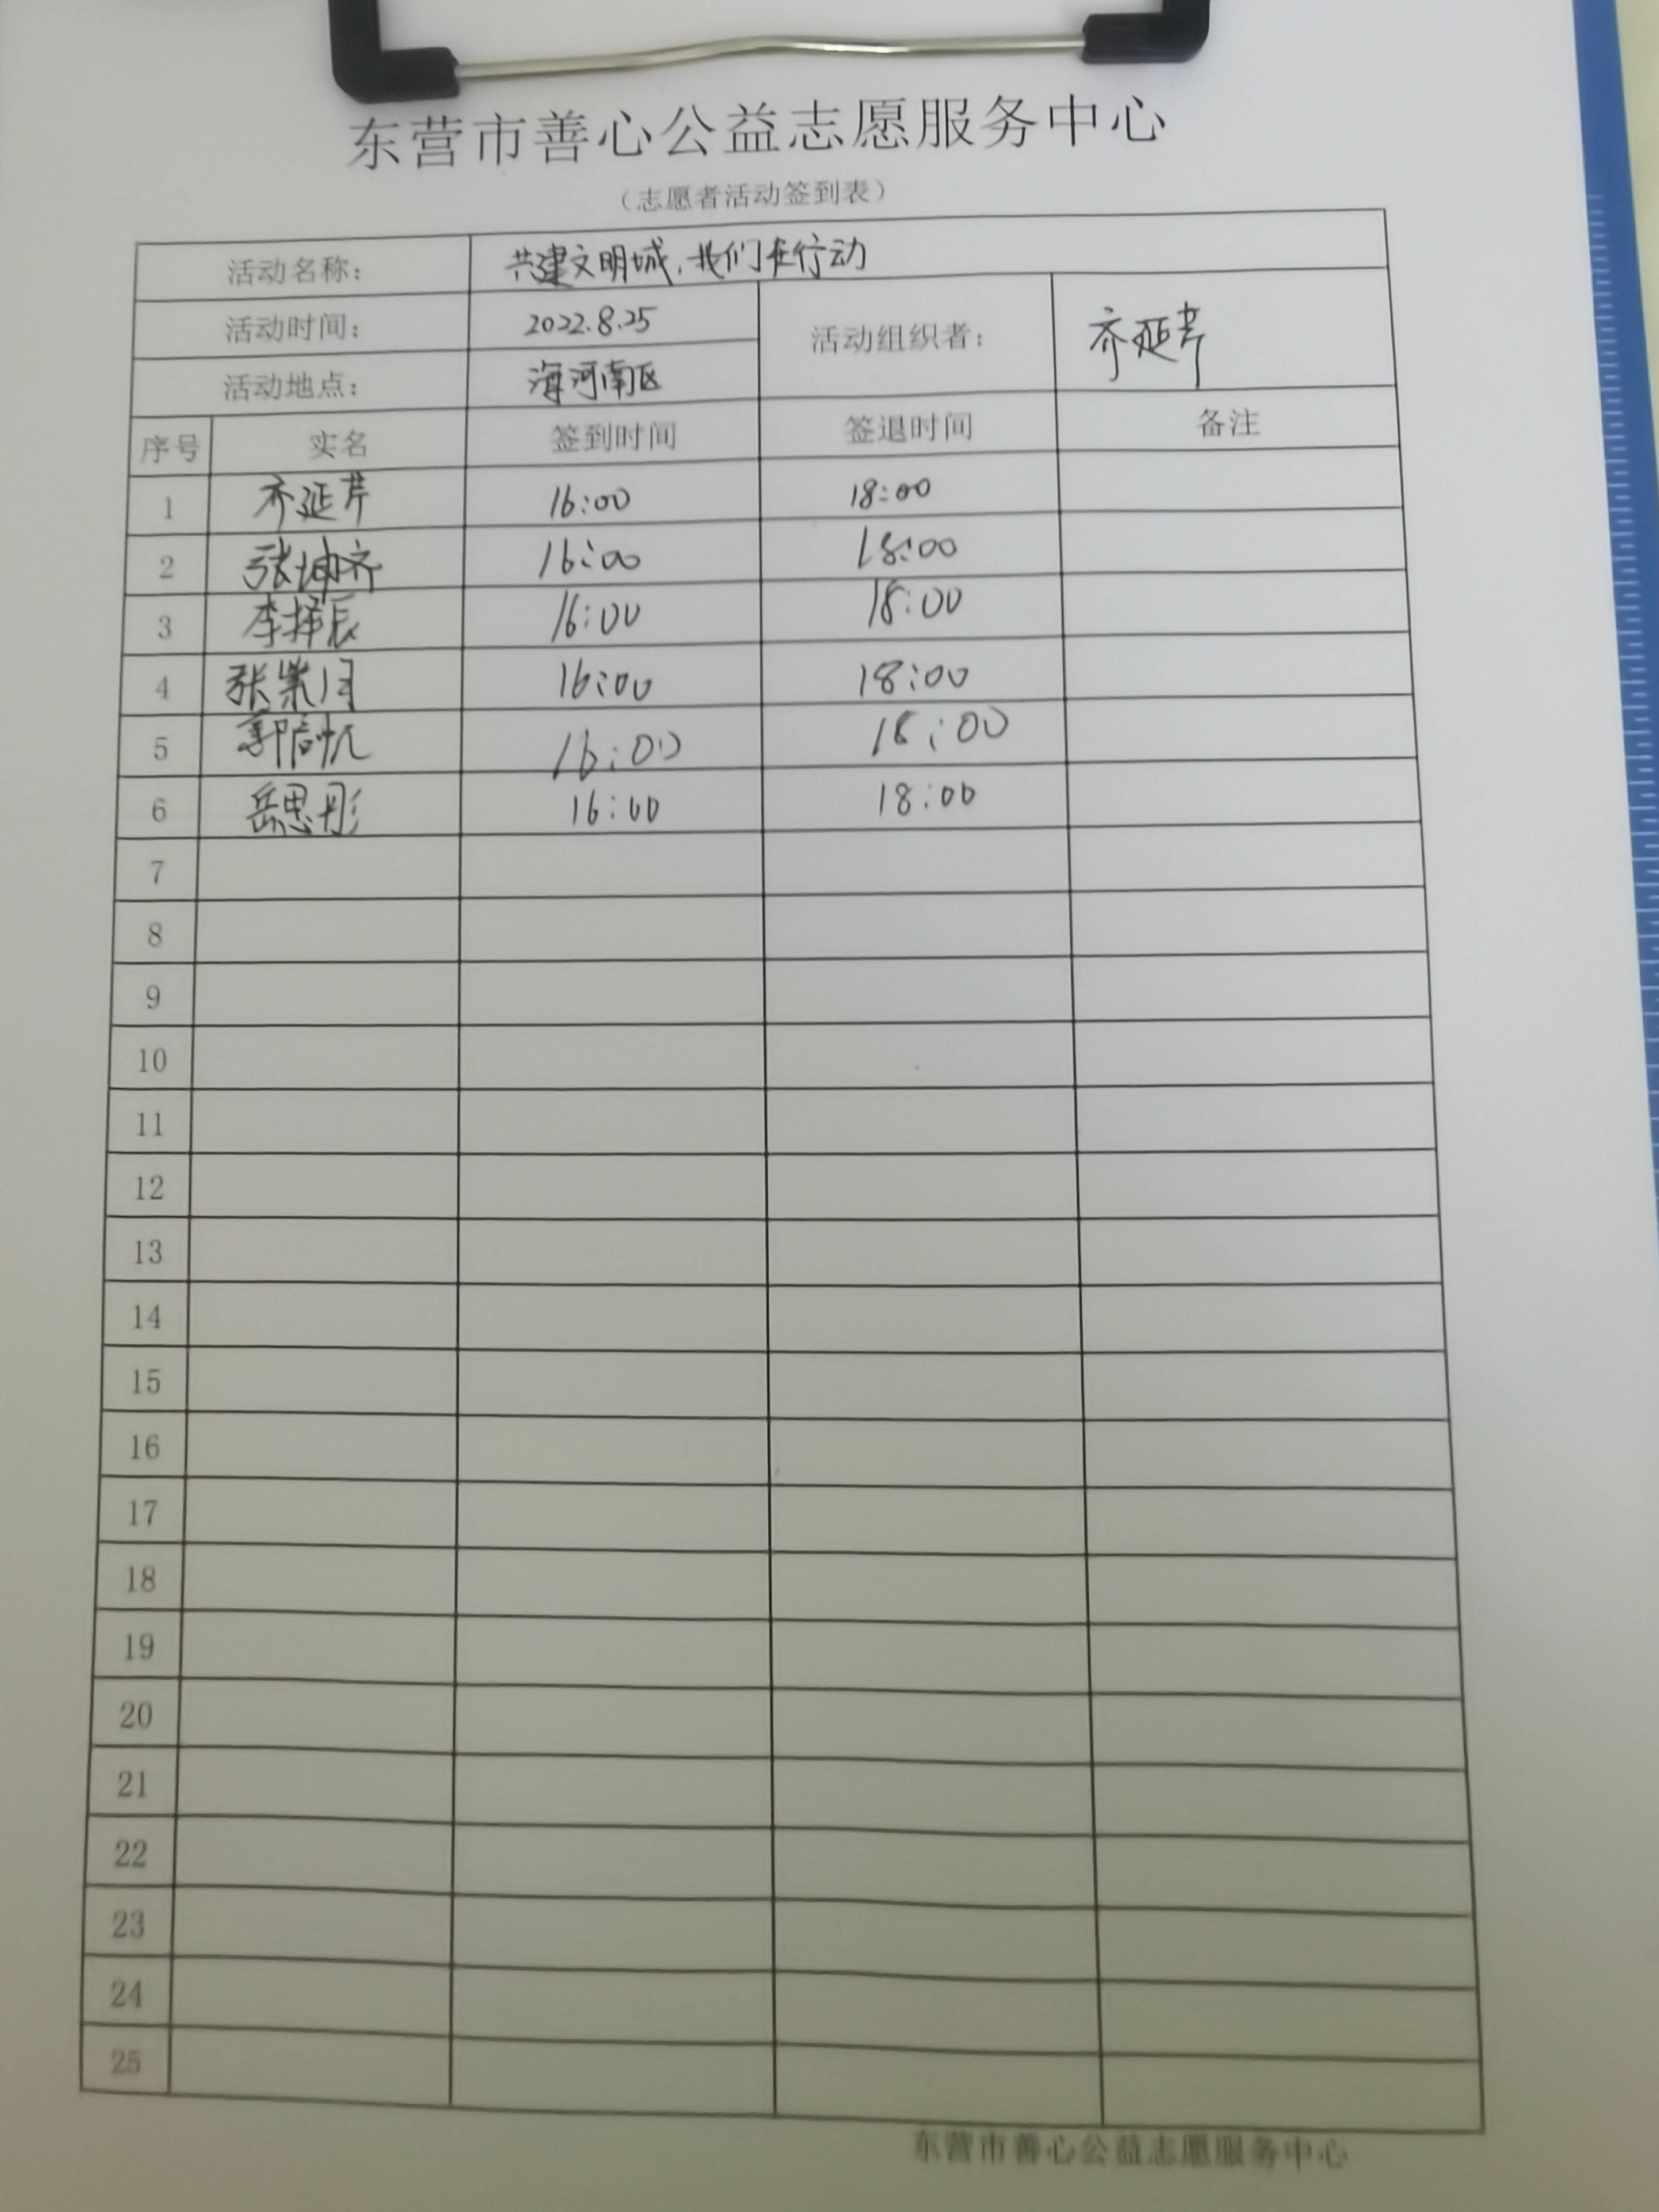 东营市善心公益志愿服务中心
（志愿者活动签到表）
活动名称： 共建文明城，我们在行动
活动时间： 2022.8.25 活动组织者： 齐延芹
活动地点： 海河南区
序号 实名 签到时间 签退时间 备注
1 齐延芹 16:00 18:00
2 张坤齐 16:00 18:00
3 李择辰 16:00 18:00
4 张紫月 16:00 18:00
5 郭 16:00 18:00
6 岳思彤 16:00 18:00
7
8
9
10
11
12
13
14
15
16
17
18
19
20
21
22
23
24
25
东营市善心公益志愿服务中心